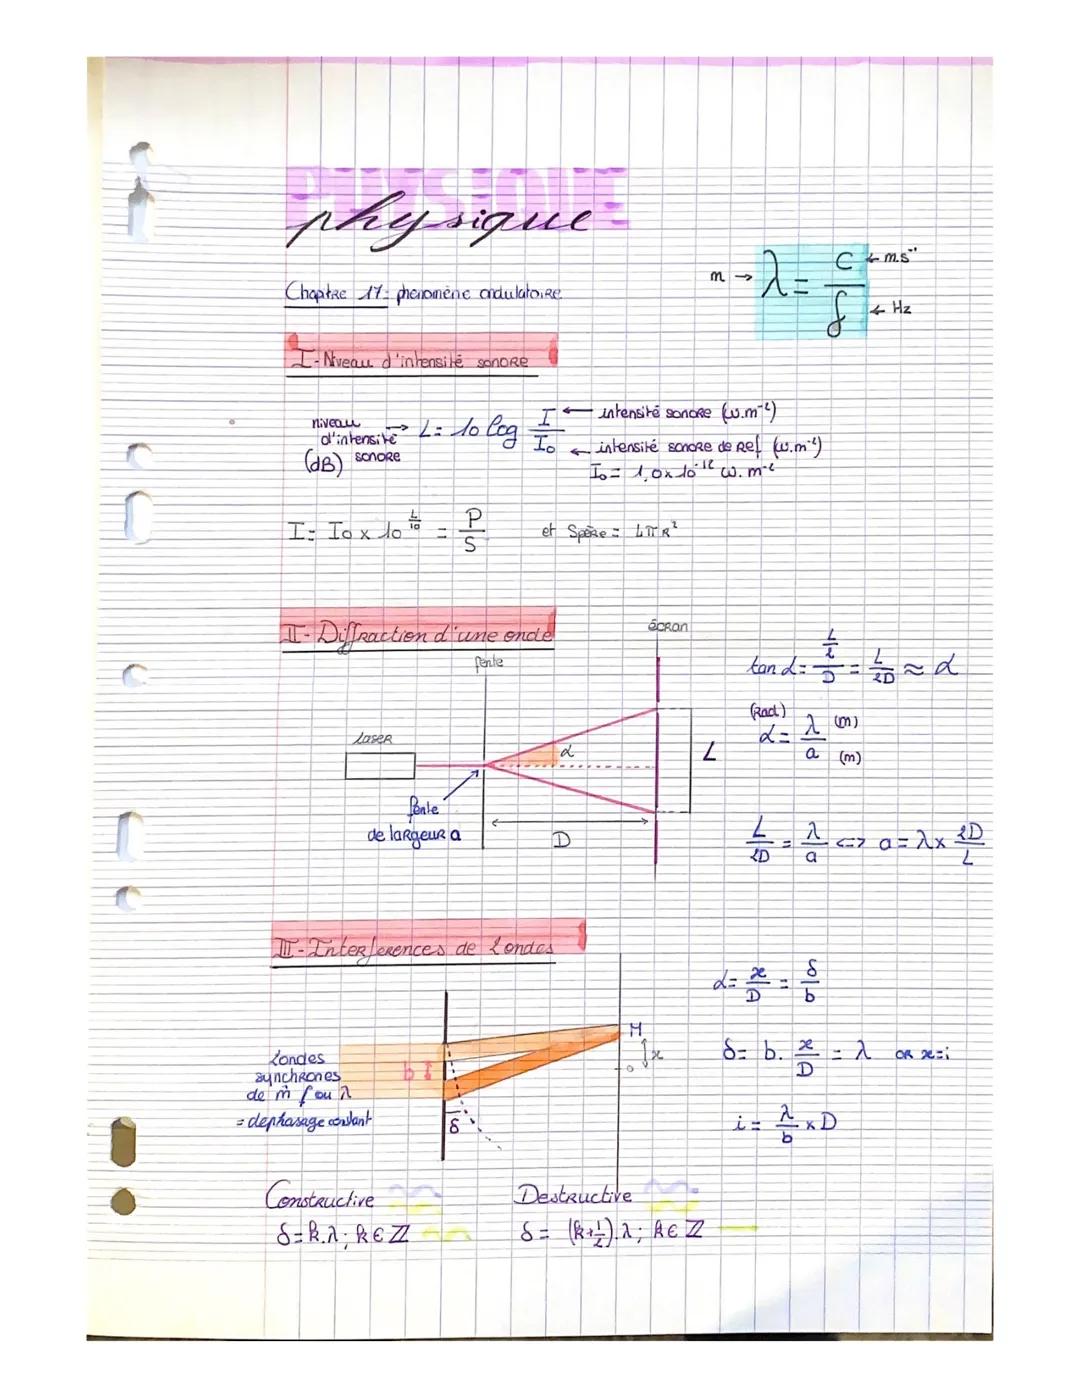 PHYSIQUE
physique
m → λ = c/f ← m.s⁻¹
← Hz
Chapitre 17: phenomène ondulatoire
I - Niveau d'intensité sonore
niveau d'intensité sonore (dB) → L = 10 log I/I₀ ← intensité sonore (w.m⁻²)
← intensité sonore de Ref (w.m⁻²)
I₀ = 1,0 x 10⁻¹² w.m⁻²
I = I₀ x 10^(L/10) = P/S et Spère = 4πR²
II - Diffraction d'une onde
écran
fente
laser
α
L
fente
de largeur a
D
tan α = (L/2)/D = L/2D ≈ α
(Rad) α = λ/a (m) (m)
L/2D = λ/a <=> a = λ x 2D/L
III - Interferences de 2 ondes
2 ondes
synchrones
de m̂ f ou λ
= dephasage constant
b
δ
M
x
o
α = x/D = δ/b
δ = b. x/D = λ OR x=i
i = λ/b x D
Constructive
δ = k.λ ; k ∈ ℤ
Destructive
δ = (k+1/2).λ ; k ∈ ℤ